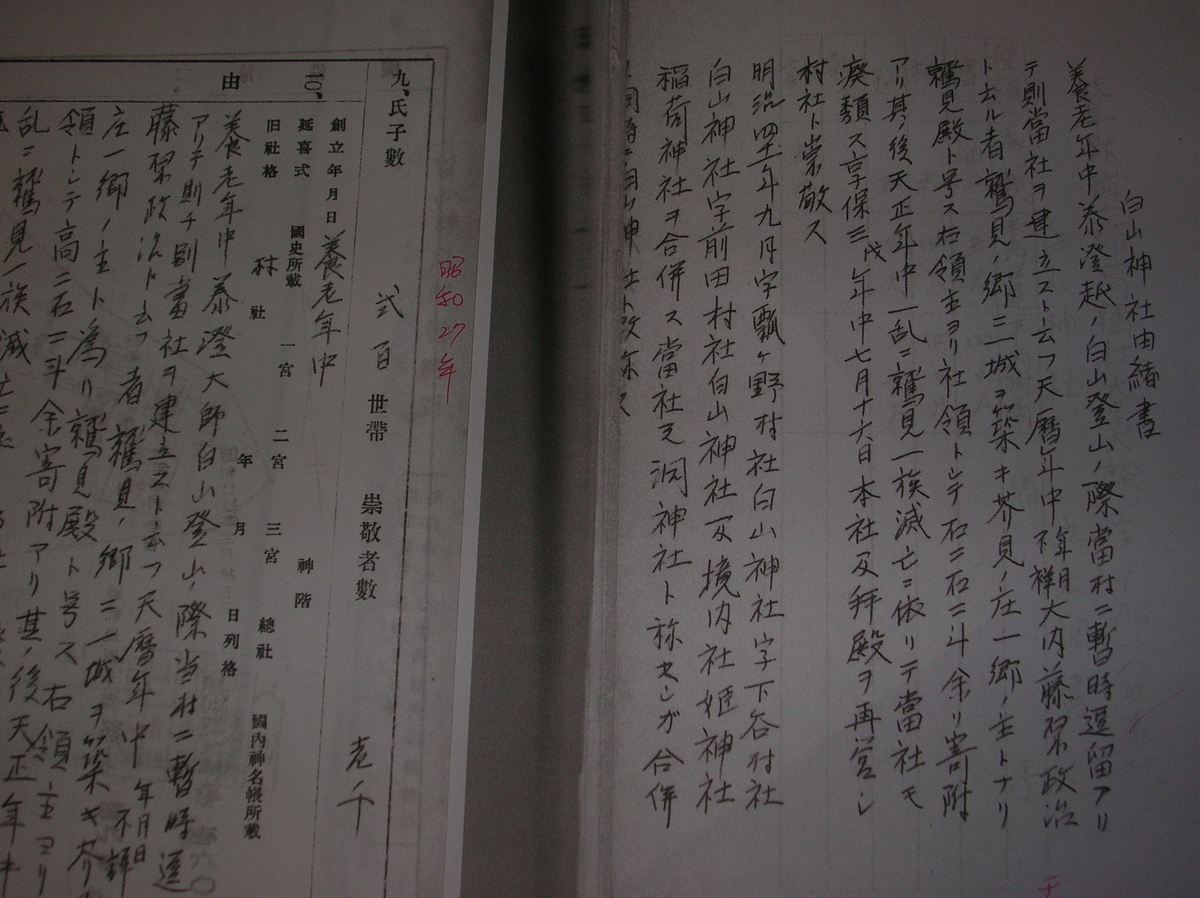 白山神社由緒書
養老年中泰澄越ノ白山登山ノ際當村ニ暫時逗留アリ
テ則當社ヲ建立スト云フ天暦年中年月不祥大内藤原政治
ト云ル者鷲見ノ郷ニ一城ヲ築キ芥見ノ庄一郷ノ主トナリ
鷲見殿ト号ス右領主ヨリ社領トシテ石二石二斗余リ寄附
アリ其ノ後天正年中一乱ニ鷲見一族滅亡ニ依リテ當社モ
廃頽ス享保三戊年中七月十六日本社及拜殿ヲ再営シ
村社ト崇敬ス
明治四年九月字瓢ヶ野村社白山神社字下谷村社
白山神社字前田村社白山神社及境内社姫神社
稲荷神社ヲ合併ス當社元洞神社ト称セシガ合併
ト同時ニ白山神社ト改称ス
昭和27年
九、氏子數 弍百世帶 崇敬者數 壱千
一〇、
創立年月日 養老年中
延喜式 國史所載 一宮 二宮 三宮 總社 國內神名帳所載
旧社格 村社 年 月 日列格
神階
由
養老年中泰澄大師白山登山ノ際当村ニ暫時逗
アリテ則チ当社ヲ建立スト云フ天暦年中年月日不詳
藤原政治ト云フ者鷲見ノ郷ニ一城ヲ築キ芥
庄一郷ノ主ト為リ鷲見殿ト号ス右領主ヨリ
領トシテ高二石二斗余寄附アリ其ノ後天正年
乱ニ鷲見一族滅亡ニ